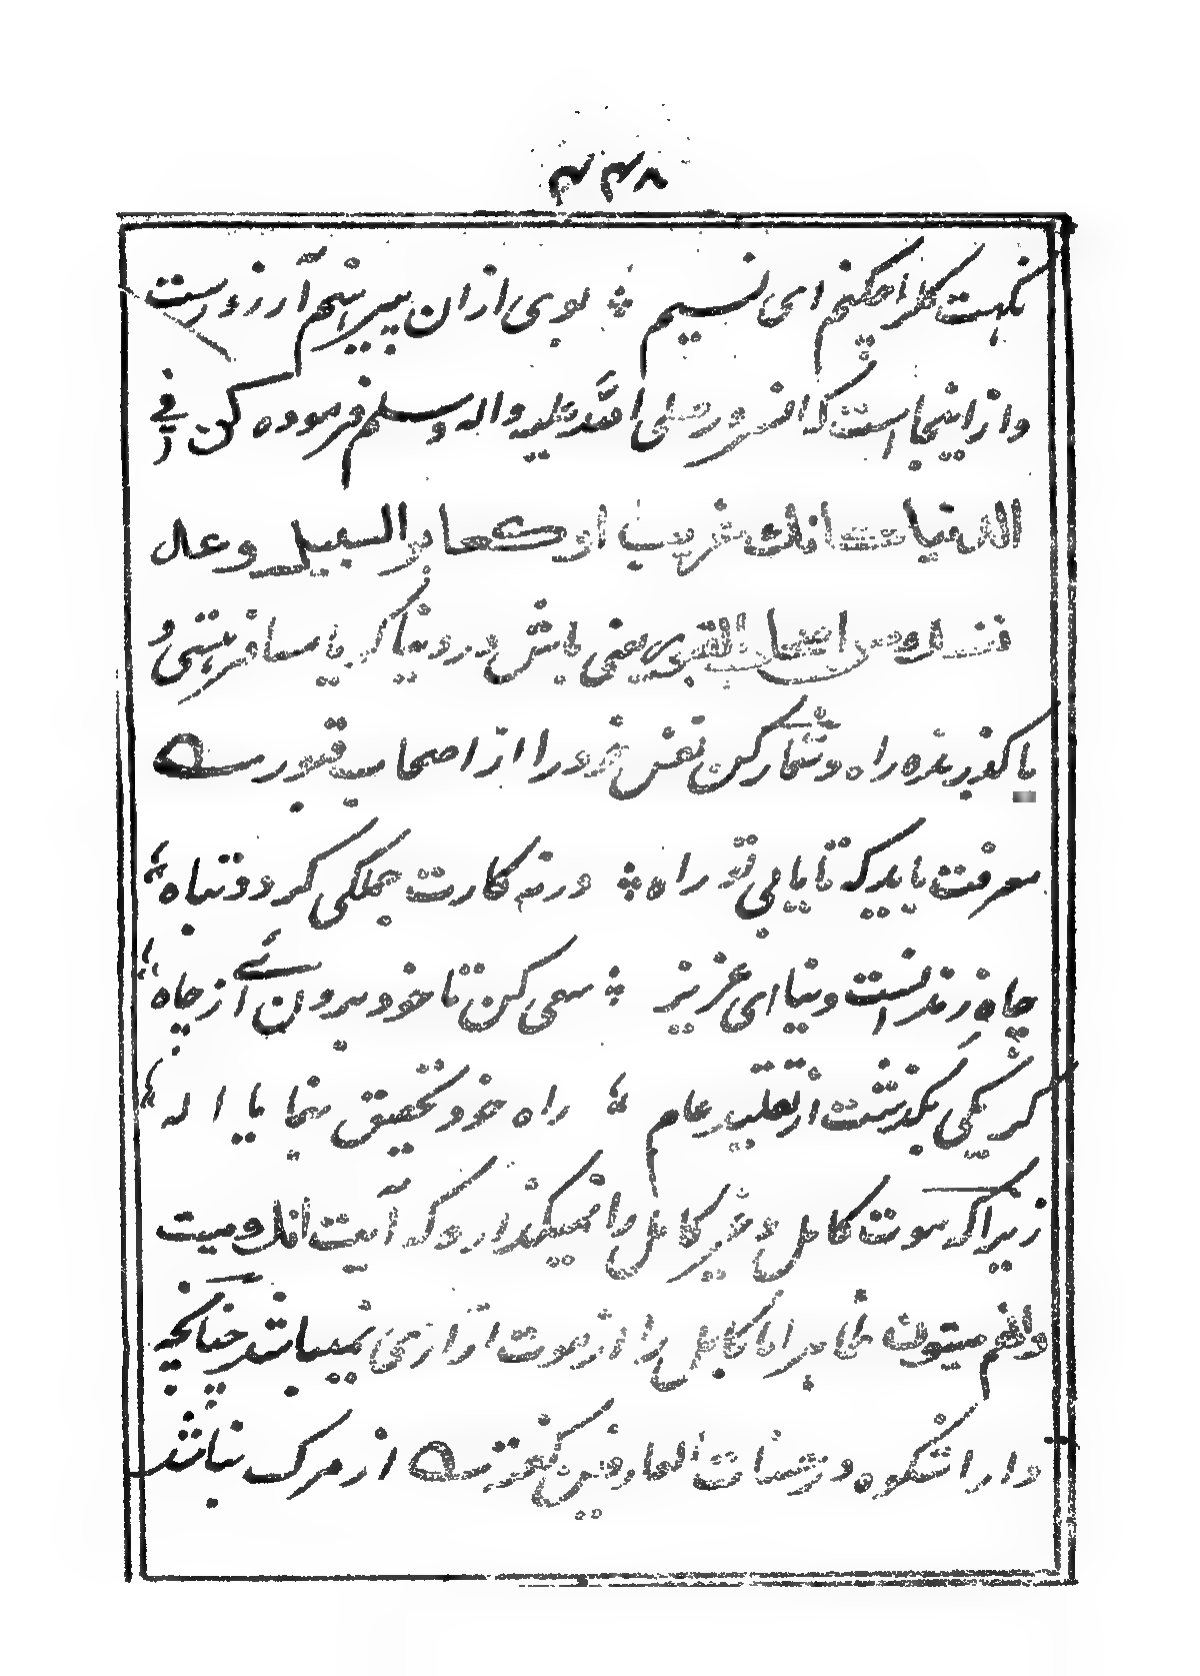 ۳۳۸
نکهت گل را چکنم ای نسیم ؞ بوی ازان پیرهنم آرزوست
و ازینجاست که انسرور صلی الله علیه و اله وسلم فرموده کن فی
الدنیا کانک غریب او کعابر السبیل وعد
نفسک من اصحاب القبور یعنی باش در دنیا گویا مسافر هستی و
یا گذرنده راه و شمار کن نفس خود را از اصحاب قبور
معرفت باید که تا یابی تو راه ؞ ورنه کارت جملگی گردد تباه
چاه زندانست دنیا ای عزیز ؞ سعی کن تا خود برون آئے از چاه
گر یکی بگذشت از تقلید عام ؞ راه خود تحقیق بنما یا اله
زیرا که موت کامل و غیر کامل را نمیگذارد که آیت انک میت
وانهم میتون ظاهر اما کامل را از موت آزاری نمیباشد چنانچه
دارا شکوه در شطحیات العارفین گفته از مرگ نباشد